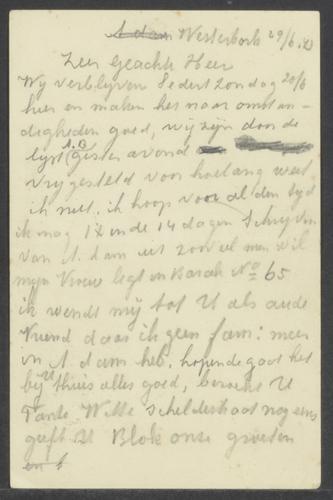 A dam Westerbork 29/6.43
Zeer Geachte Heer
Wij verblijven Sedert Zondag 20/6
hier en maken het naar omstan-
digheden goed, wij zijn door de
lijst A.B gister avond
vrijgesteld voor hoelang weet
ik niet. ik hoop voor al den tijd
ik mag 1x in de 14 dagen Schrijven
van A. dam uit zoo veel men wil
mijn Vrouw legt in Barak No 65
ik wendt mij tot U als oude
Vriend daar ik geen fam: meer
in A. dam heb, hopende gaat het
bij U thuis alles goed, U
Tante Witte Schelderstraat nog eens
geeft Blok onze groeten
en